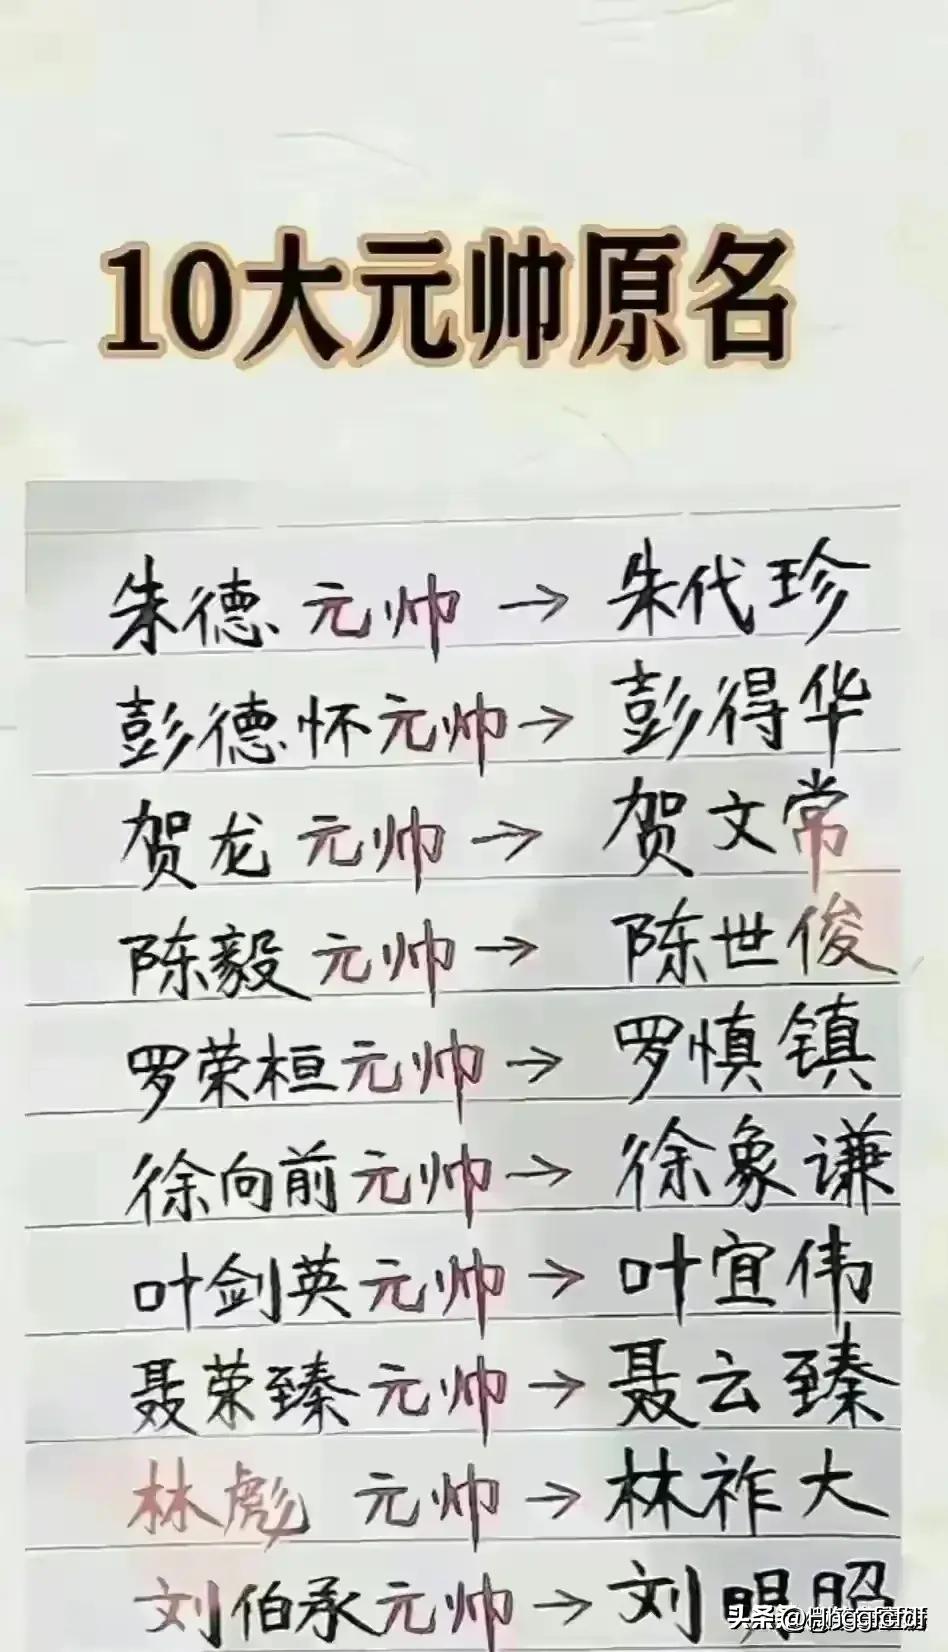 10大元帅原名
朱德元帅→朱代珍
彭德怀元帅→彭得华
贺龙元帅→贺文常
陈毅元帅→陈世俊
罗荣桓元帅→罗慎镇
徐向前元帅→徐象谦
叶剑英元帅→叶宜伟
聂荣臻元帅→聂云臻
林彪元帅→林祚大
刘伯承元帅→刘明昭
头条@